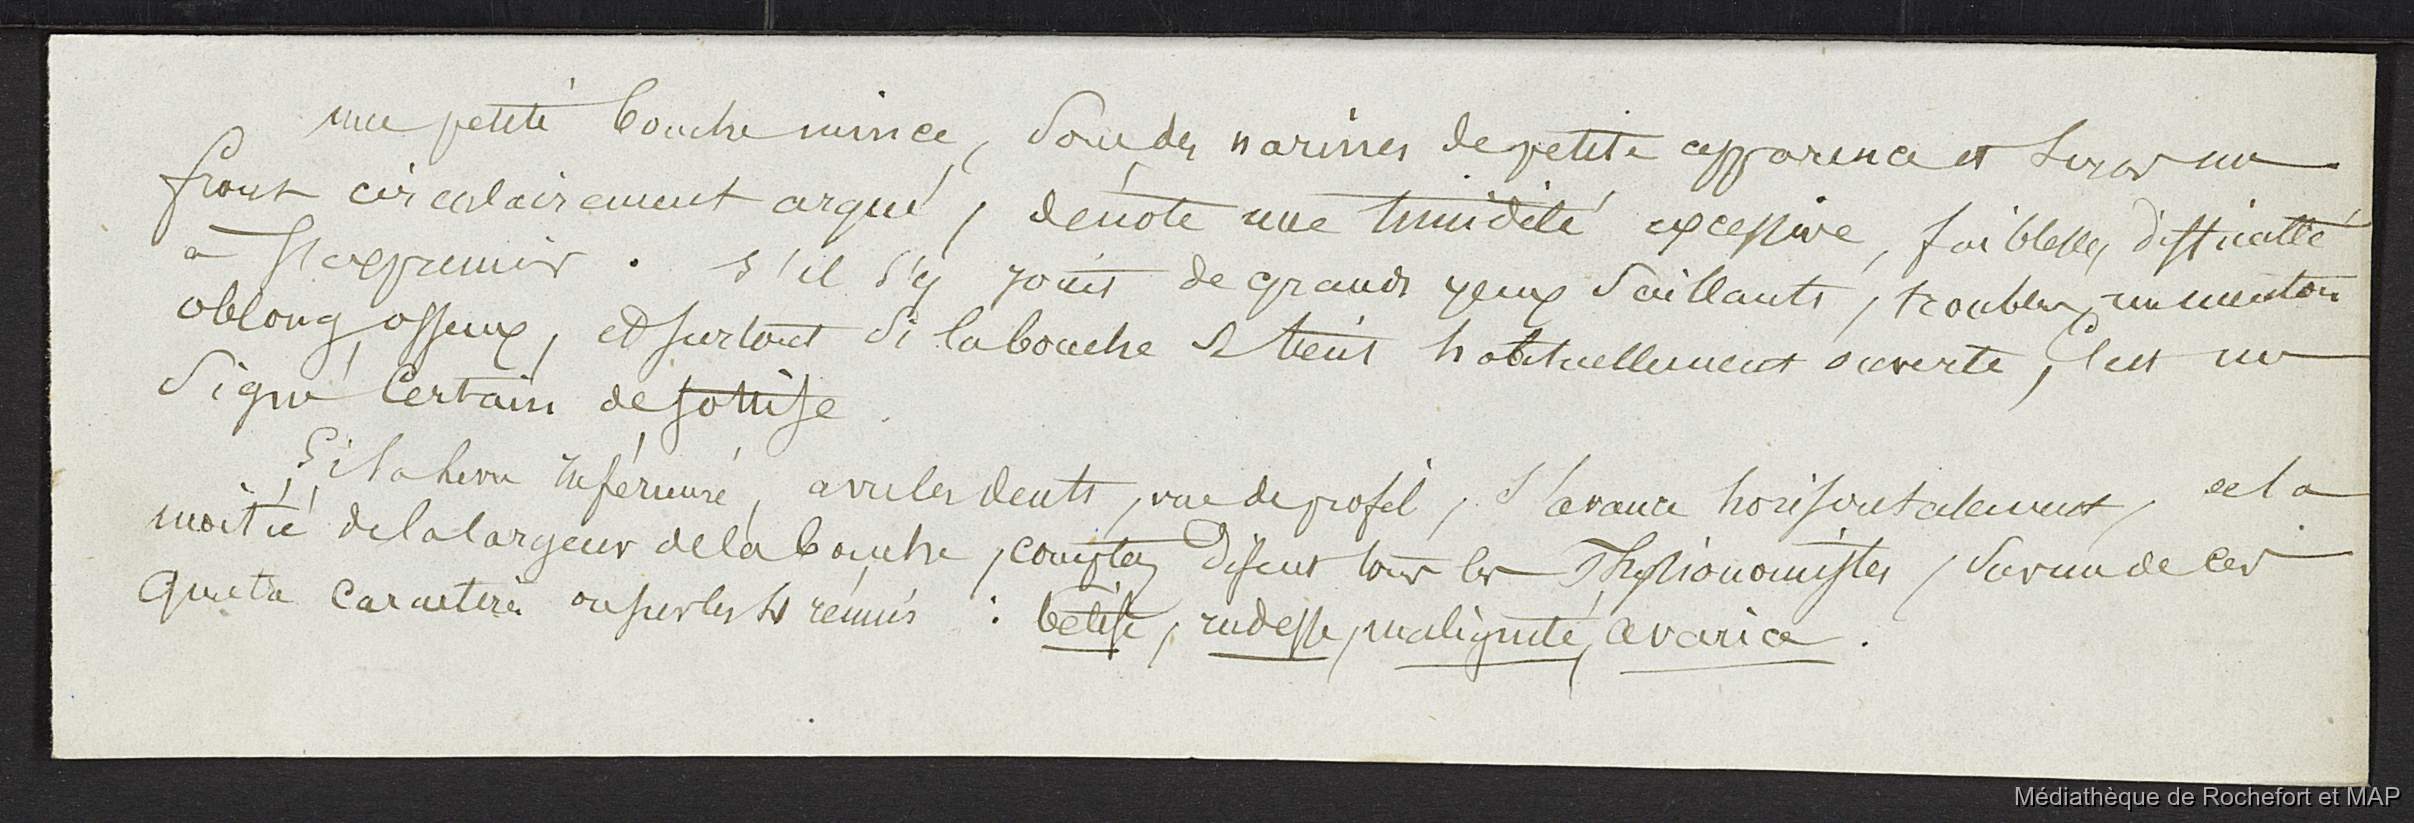 une petite bouche mince, sous des narines de petite apparence et sous un
front circulairement arqué, dénote une timidité excessive, faiblesse, difficulté
à s'exprimer. s'il s'y joint de grands yeux saillants, troubles, un menton
oblong, osseux, et surtout si la bouche se tient habituellement ouverte, c'est un
signe certain de sottise.
Si la lèvre inférieure, avec les dents, vue de profil, s'avance horisontalement, de la
moitié de la largeur de la bouche, comptez disent tous les Physionomistes, sur un de ces
quatre caractères ou sur les 4 réunis : bêtise, rudesse, malignité, avarice.
Médiathèque de Rochefort et MAP